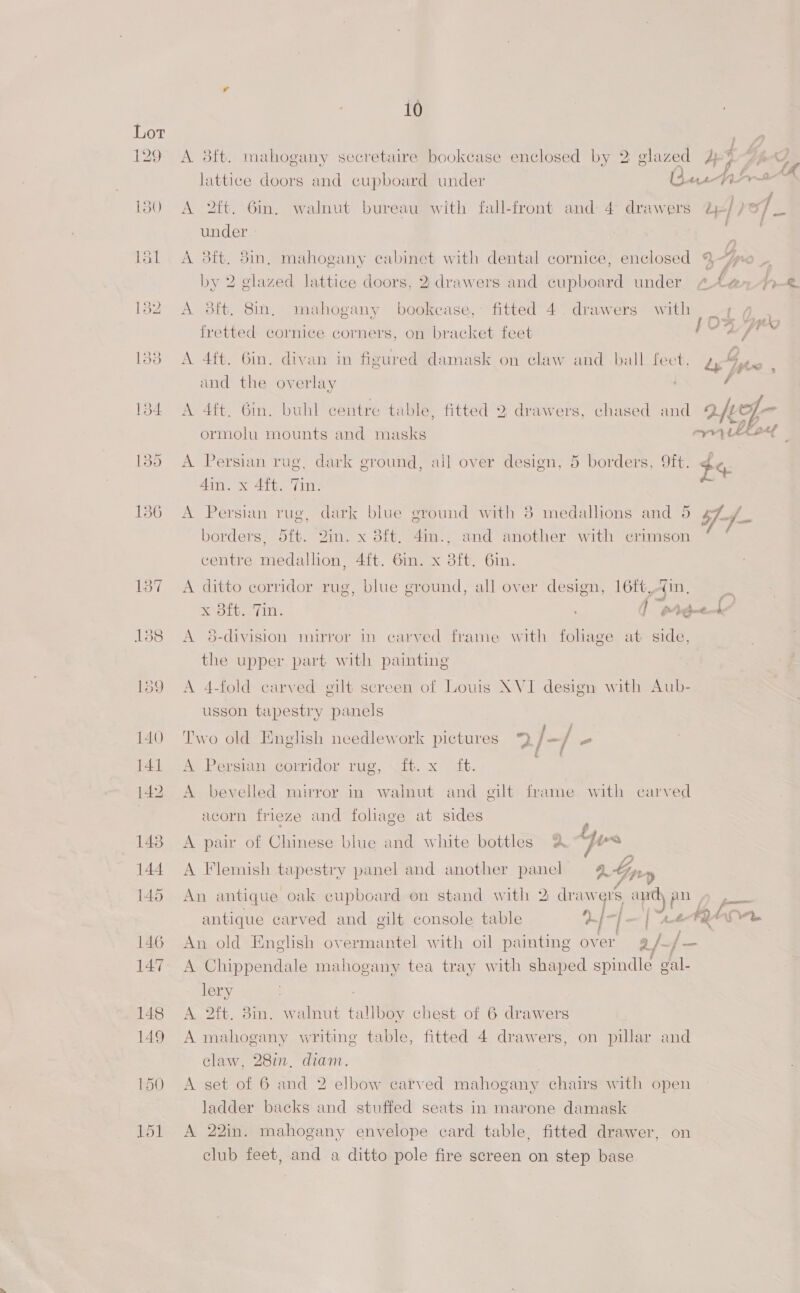 10
Lot
129 A 3ft. mahogany secretaire bookcase enclosed by 2 glazed
lattice doors and cupboard under
130 A 2ft. 6in. walnut bureau with fall-front and 4 drawers
under
131 A 3ft. 3in. mahogany cabinet with dental cornice, enclosed
by 2 glazed lattice doors, 2 drawers and cupboard under
132 A 3ft. 8in. mahogany bookcase, fitted 4 drawers with
fretted cornice corners, on bracket feet
133 A 4ft. 6in. divan in figured damask on claw and ball feet.
and the overlay
134 A 4ft. 6in. buhl centre table, fitted 2 drawers, chased and
ormolu mounts and masks
135 A Persian rug, dark ground, all over design, 5 borders, 9ft.
4in. x 4ft. 7in.
136 A Persian rug, dark blue ground with 3 medallions and 5
borders, 5ft. 2in. x 3ft. 4in., and another with crimson
centre medallion, 4ft. 6in. x 3ft. 6in.
137 A ditto corridor rug, blue ground, all over design, 16ft. 4in.
x 3ft. 7in.
138 A 3-division mirror in carved frame with foliage at side,
the upper part with painting
139 A 4-fold carved gilt screen of Louis XVI design with Aub-
usson tapestry panels
140 Two old English needlework pictures 2/-/-
141 A Persian corridor rug, ft. x ft.
142 A bevelled mirror in walnut and gilt frame with carved
acorn frieze and foliage at sides
143 A pair of Chinese blue and white bottles
144 A Flemish tapestry panel and another panel
145 An antique oak cupboard on stand with 2 drawers and an
antique carved and gilt console table 2/-/-
146 An old English overmantel with oil painting over 2/-/-
147 A Chippendale mahogany tea tray with shaped spindle gal-
lery
148 A 2ft. 3in. walnut tallboy chest of 6 drawers
149 A mahogany writing table, fitted 4 drawers, on pillar and
claw, 28in. diam.
150 A set of 6 and 2 elbow carved mahogany chairs with open
ladder backs and stuffed seats in marone damask
151 A 22in. mahogany envelope card table, fitted drawer, on
club feet, and a ditto pole fire screen on step base